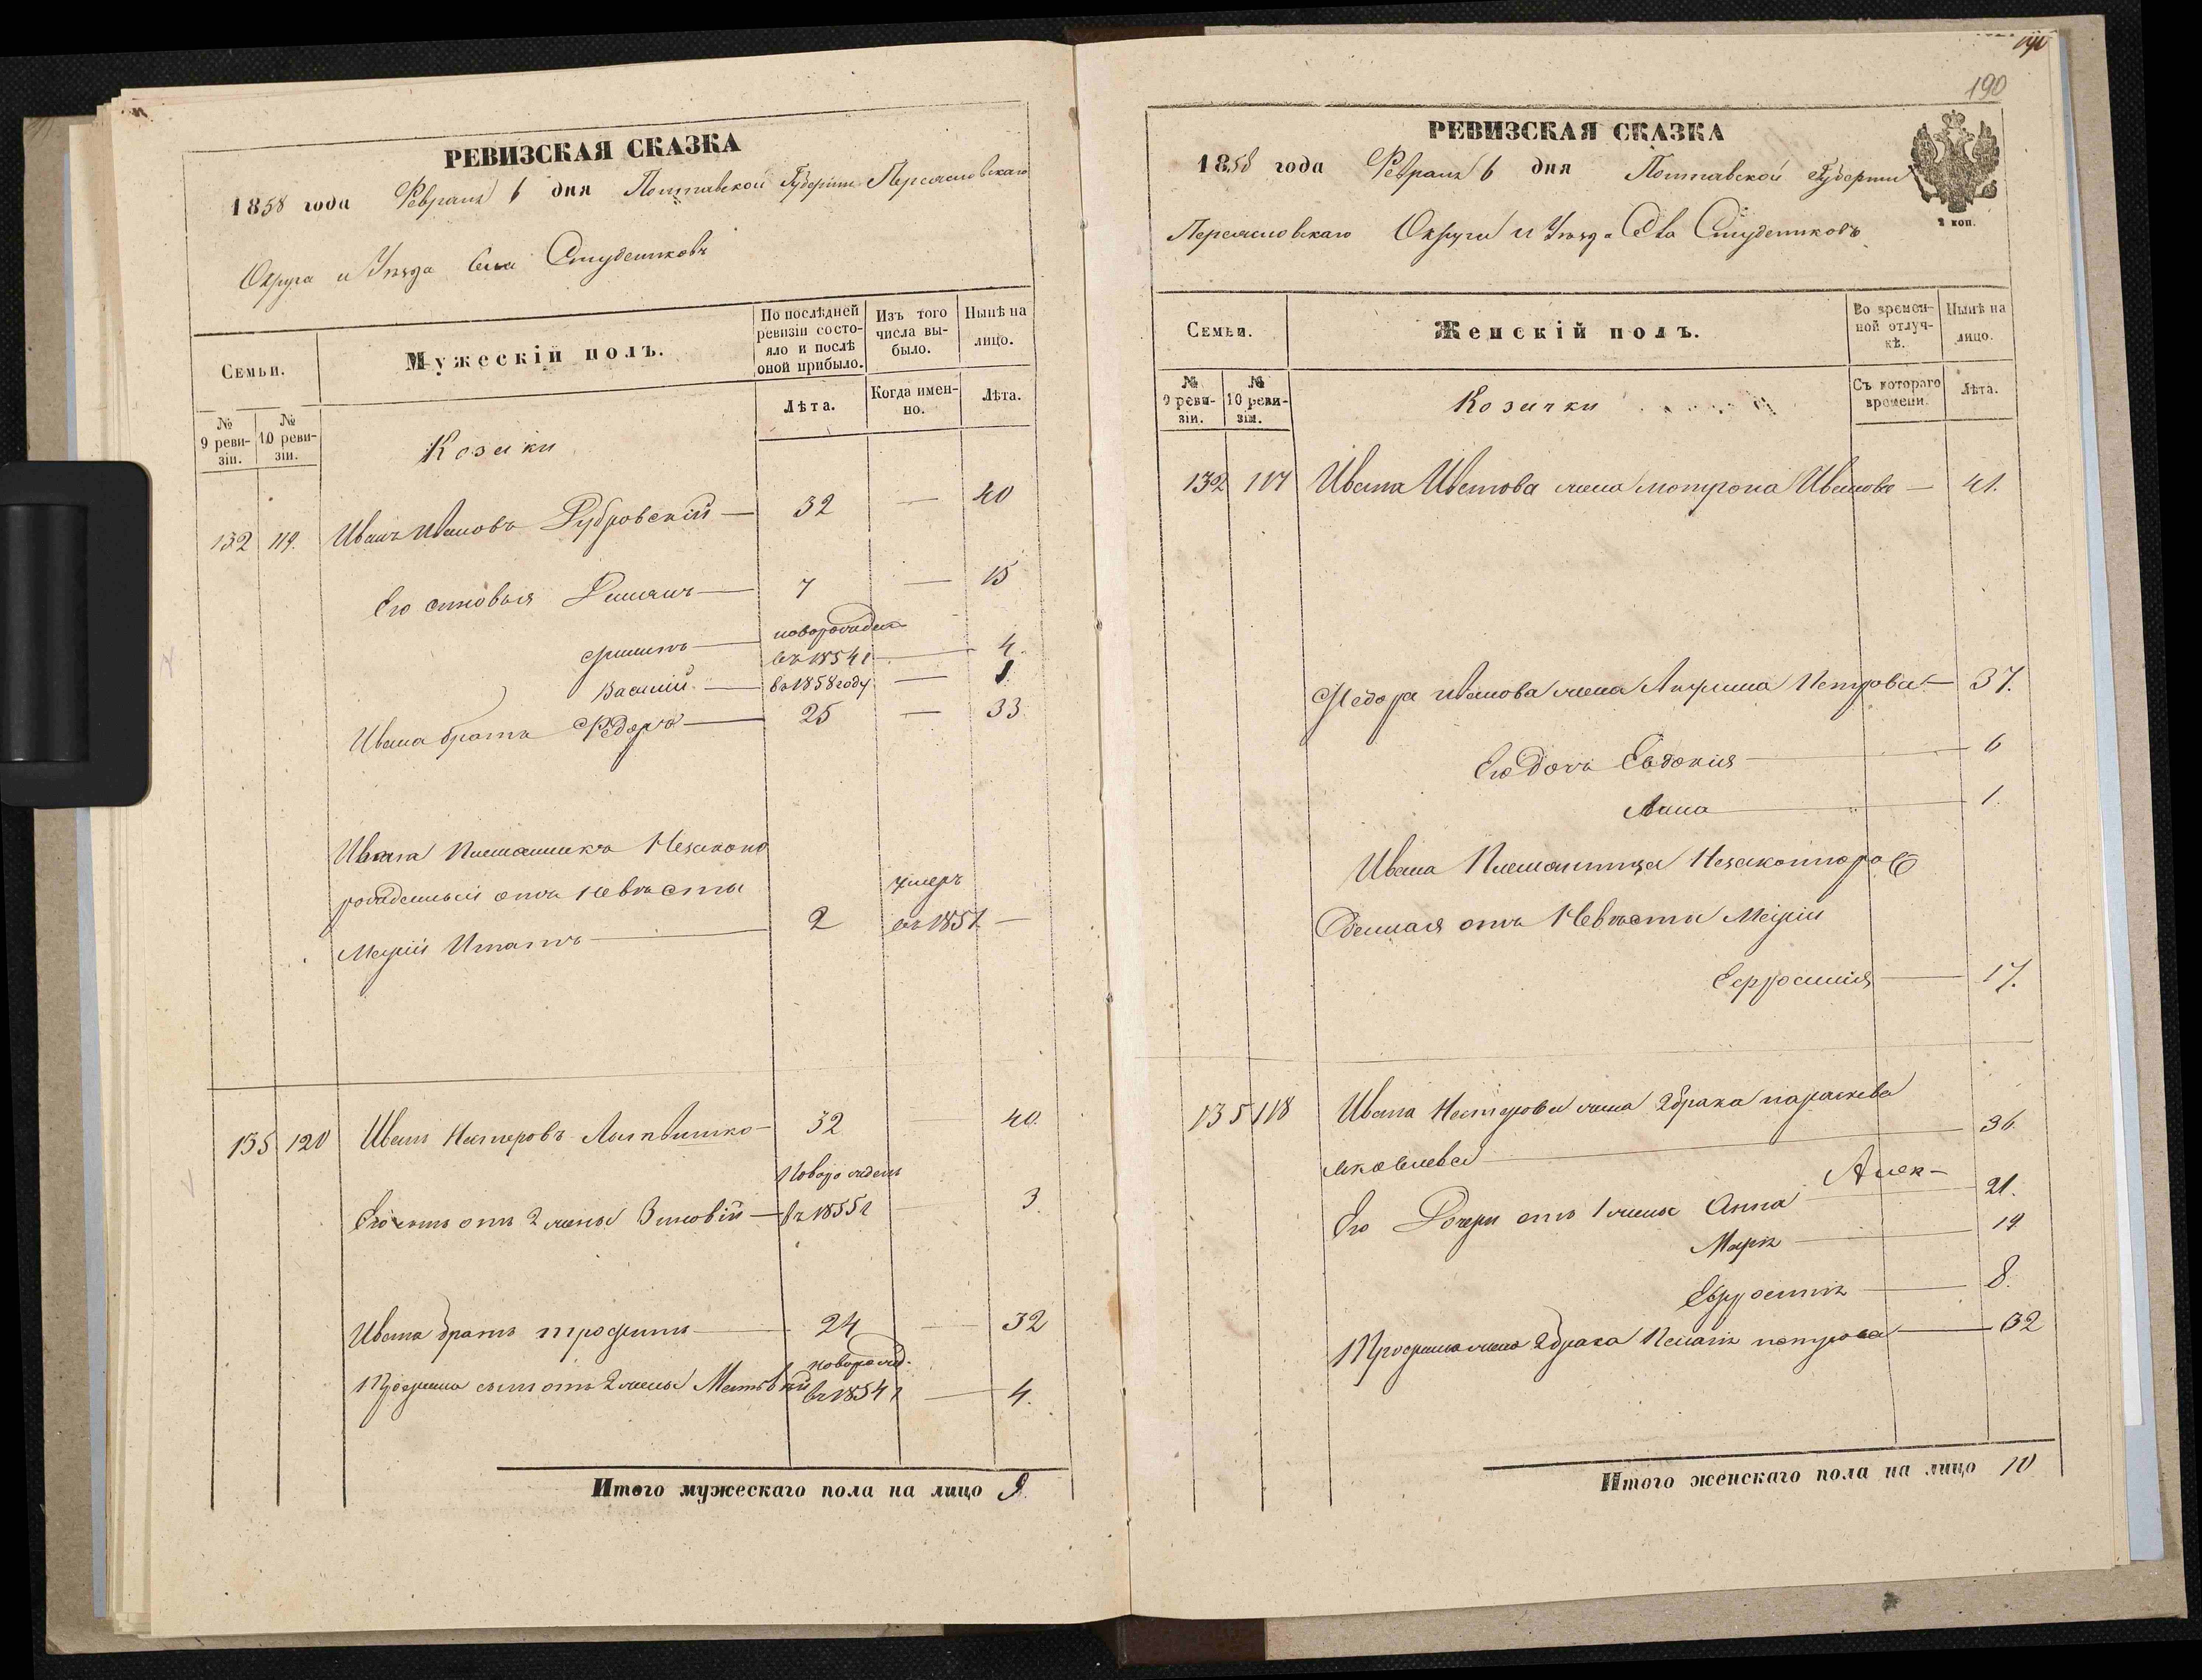 РЕВИЗСКАЯ СКАЗКА
1858 года Февраля 6 дня Полтавской Губернии Переясловскаго
Округа и Уезда Села Студениковъ
Семьи.
Мужескій полъ.
По послѣдней ревизіи состояло и послѣ оной прибыло.
Изъ того числа выбыло.
Нынѣ на лицо.
№ 9 ревизіи.
№ 10 ревизіи.
Козаки
Лѣта.
Когда именно.
Лѣта.
132 119. Иванъ Ивановъ Дубровскій — 32 — 40
Его сыновья Демянъ — 7 — 15
новорожден
Филипъ — въ 1854 г — 4.
Василій — въ 1858 году — 1.
Ивана братъ Федоръ — 25 — 33.
Ивана Племянникъ Незаконо
рожденный отъ Невѣсты
умеръ
Марии Игнатъ — 2 въ 1851 —
135 120 Иванъ Нестеровъ Литвинко — 32 — 40.
Новорожденъ
Его сынъ отъ 2 жены Зиновій — въ 1855 г — 3.
Ивана братъ Трофимъ — 24 — 32
новорожд.
Трофима сынъ отъ 2 жены Матвѣй въ 1854 г — 4.
Итого мужескаго пола на лицо 9.
190
РЕВИЗСКАЯ СКАЗКА
1858 года Февраля 6 дня Полтавской Губернии
2 коп.
Переясловскаго Округа и Уезда Села Студениковъ
Семьи.
Женскій полъ.
Во временной отлучкѣ.
Нынѣ на лицо.
№ 9 ревизіи.
№ 10 ревизіи.
Козачки
Съ котораго времени.
Лѣта.
132 117 Ивана Иванова жена Мотрона Иванова — 41.
Федора Иванова жена Петрова — 37.
Его Дочь Евдокия — 6
Анна — 1.
Ивана Племянница Незаконноро
жденная отъ Невѣсты Марии
Ефросиния — 17.
135 118 Ивана Нестерова жена 2 брака Параскева
Яковлева — 36.
Его Дочери отъ 1 жены Анна — 21.
Мария — 19
Ефросиния — 8.
Трофима жена 2 брака Пелагия Петрова — 32
Итого женскаго пола на лицо 10